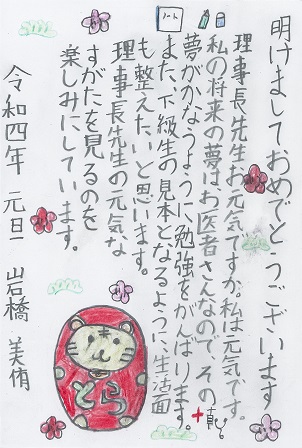 明けましておめでとうございます
理事長先生お元気ですか。私は元気です。
私の将来の夢はお医者さんなので、その
夢がかなうように勉強をがんばります。
また、下級生の見本となるように、生活面
も整えたいと思います。
理事長先生の元気な
すがたを見るのを
楽しみにしています。
令和四年 元旦 岩橋 美侑
ノート
とら